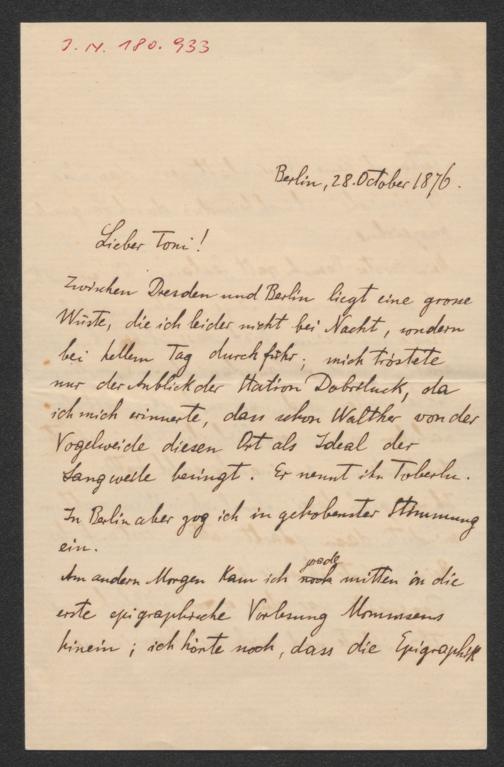 J. N. 180.933
Berlin, 28. October 1876.
Lieber Toni!
Zwischen Dresden und Berlin liegt eine grosse
Wüste, die ich leider nicht bei Nacht, sondern
bei hellem Tag durchfuhr; mich tröstete
nur der Anblick der Station Dobriluck, da
ich mich erinnerte, dass schon Walther von der
Vogelweide diesen Ort als Ideal der
Langweile besingt. Er nennt ihn Toberlu.
In Berlin aber zog ich in gehobenster Stimmung
ein.
grade
Am andern Morgen kam ich noch mitten in die
erste epigraphische Vorlesung Mommsens
hinein; ich hörte noch, dass die Epigraphik